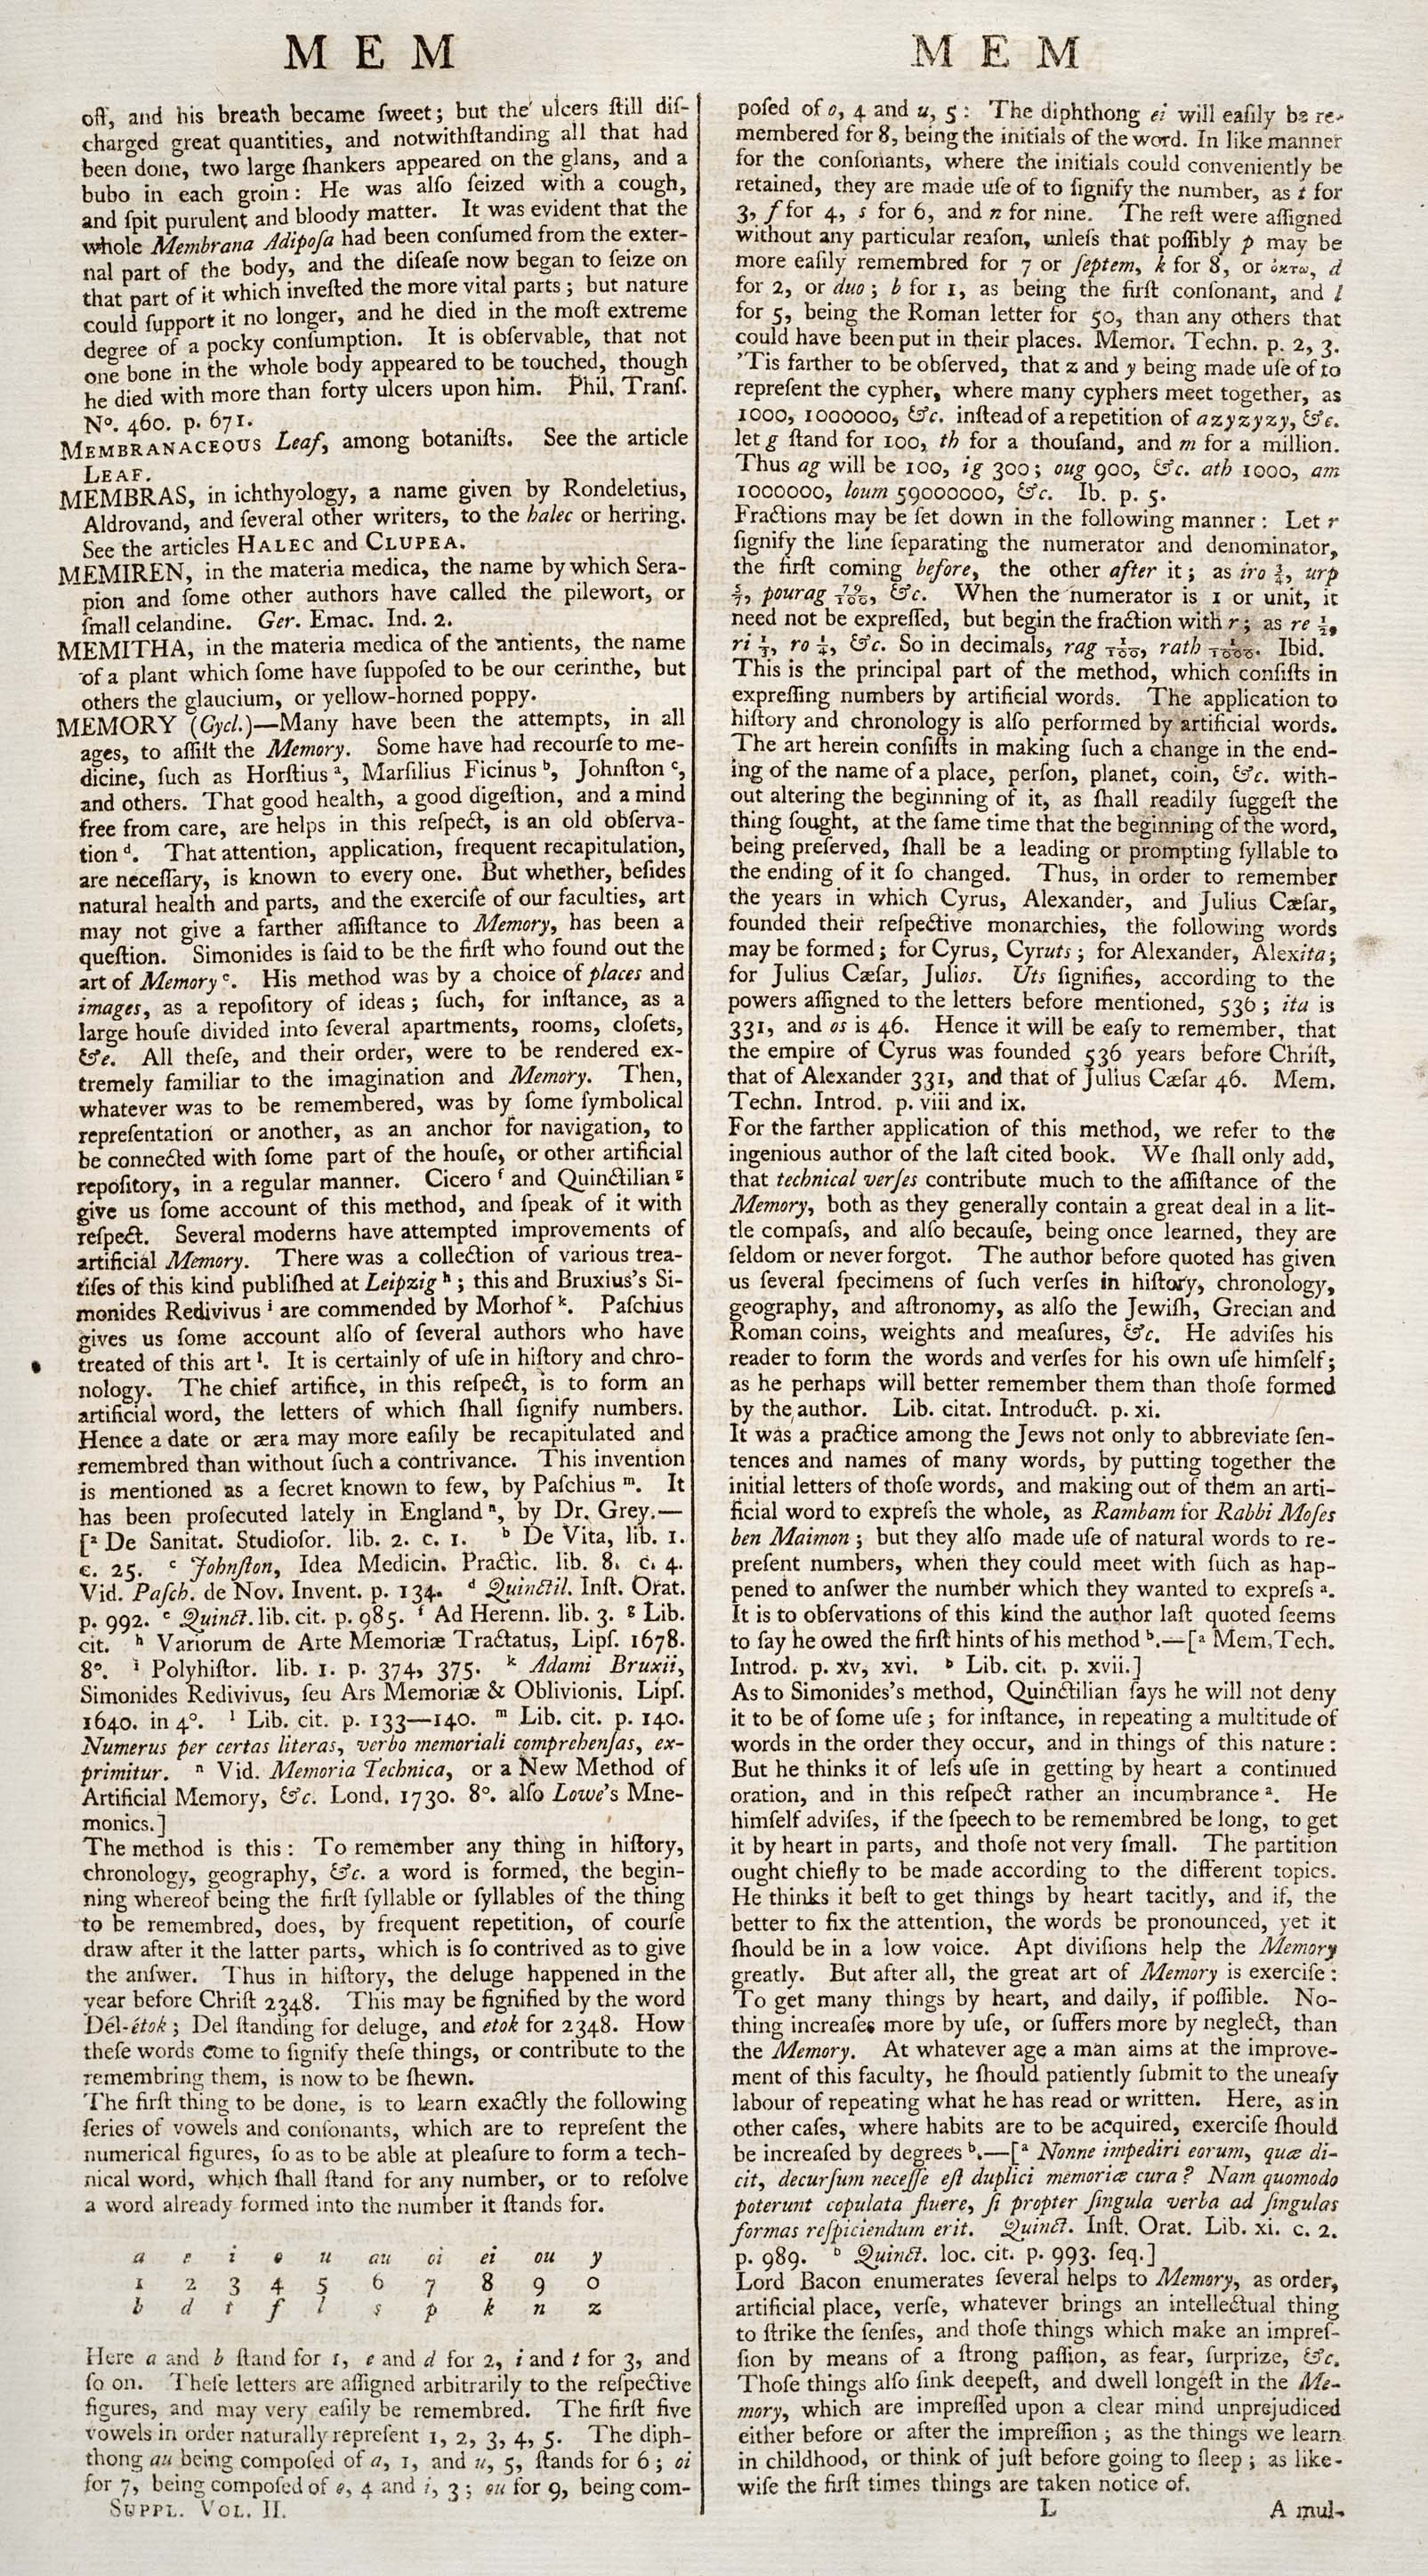 MEM
oſt, and his breath became ſweet; but the ulcers ſtill diſ-
charged great quantities, and notwithſtanding all that had
been done, two large ſhankers appeared on the glans, and a
bubo in each groin: He was alſo ſeized with a cough,
and ſpit purulent and bloody matter. It was evident that the
whole Membrana Adipoſa had been conſumed from the exter-
nal part of the body, and the diſeaſe now began to ſeize on
that part of it which inveſted the more vital parts; but nature
could ſupport it no longer, and he died in the moſt extreme
degree of a pocky conſumption. It is obſervable, that not
one bone in the whole body appeared to be touched, though
he died with more than forty ulcers upon him. Phil. Tranſ.
Nº. 460. p. 671.
MEMBRANACEOUS Leaf, among botaniſts. See the article
LEAF.
MEMBRAS, in ichthyology, a name given by Rondeletius,
Aldrovand, and ſeveral other writers, to the halec or herring.
See the articles HALEC and CLUPEA.
MEMIREN, in the materia medica, the name by which Sera-
pion and ſome other authors have called the pilewort, or
ſmall celandine. Ger. Emac. Ind. 2.
MEMITHA, in the materia medica of the antients, the name
of a plant which ſome have ſuppoſed to be our cerinthe, but
others the glaucium, or yellow-horned poppy.
MEMORY (Cycl.)—Many have been the attempts, in all
ages, to aſſiſt the Memory. Some have had recourſe to me-
dicine, ſuch as Horſtius ᵃ, Marſilius Ficinus ᵇ, Johnſton ᶜ,
and others. That good health, a good digeſtion, and a mind
free from care, are helps in this reſpect, is an old obſerva-
tion ᵈ. That attention, application, frequent recapitulation,
are neceſſary, is known to every one. But whether, beſides
natural health and parts, and the exerciſe of our faculties, art
may not give a farther aſſiſtance to Memory, has been a
queſtion. Simonides is ſaid to be the firſt who found out the
art of Memory ᵉ. His method was by a choice of places and
images, as a repoſitory of ideas; ſuch, for inſtance, as a
large houſe divided into ſeveral apartments, rooms, cloſets,
&e. All theſe, and their order, were to be rendered ex-
tremely familiar to the imagination and Memory. Then,
whatever was to be remembered, was by ſome ſymbolical
repreſentation or another, as an anchor for navigation, to
be connected with ſome part of the houſe, or other artificial
repoſitory, in a regular manner. Cicero ᶠ and Quinctilian ᵍ
give us ſome account of this method, and ſpeak of it with
reſpect. Several moderns have attempted improvements of
artificial Memory. There was a collection of various trea-
tiſes of this kind publiſhed at Leipzig ʰ; this and Bruxius's Si-
monides Redivivus ⁱ are commended by Morhof ᵏ. Paſchius
gives us ſome account alſo of ſeveral authors who have
treated of this art ˡ. It is certainly of uſe in hiſtory and chro-
nology. The chief artifice, in this reſpect, is to form an
artificial word, the letters of which ſhall ſignify numbers.
Hence a date or æra may more eaſily be recapitulated and
remembred than without ſuch a contrivance. This invention
is mentioned as a ſecret known to few, by Paſchius ᵐ. It
has been proſecuted lately in England ⁿ, by Dr. Grey.—
[ᵃ De Sanitat. Studioſor. lib. 2. c. 1. ᵇ De Vita, lib. 1.
c. 25. ᶜ Johnſton, Idea Medicin. Practic. lib. 8. c. 4.
Vid. Paſch. de Nov. Invent. p. 134. ᵈ Quinctil. Inſt. Orat.
p. 992. ᵉ Quinct. lib. cit. p. 985. ᶠ Ad Herenn. lib. 3. ᵍ Lib.
cit. ʰ Variorum de Arte Memoriæ Tractatus, Lipſ. 1678.
8º. ⁱ Polyhiſtor. lib. 1. p. 374, 375. ᵏ Adami Bruxii,
Simonides Redivivus, ſeu Ars Memoriæ & Oblivionis. Lipſ.
1640. in 4º. ˡ Lib. cit. p. 133—140. ᵐ Lib. cit. p. 140.
Numerus per certas literas, verbo memoriali comprehenſas, ex-
primitur. ⁿ Vid. Memoria Technica, or a New Method of
Artificial Memory, &c. Lond. 1730. 8º. alſo Lowe's Mne-
monics.]
The method is this: To remember any thing in hiſtory,
chronology, geography, &c. a word is formed, the begin-
ning whereof being the firſt ſyllable or ſyllables of the thing
to be remembred, does, by frequent repetition, of courſe
draw after it the latter parts, which is ſo contrived as to give
the anſwer. Thus in hiſtory, the deluge happened in the
year before Chriſt 2348. This may be ſignified by the word
Dél-étok; Del ſtanding for deluge, and etok for 2348. How
theſe words come to ſignify theſe things, or contribute to the
remembring them, is now to be ſhewn.
The firſt thing to be done, is to learn exactly the following
ſeries of vowels and conſonants, which are to repreſent the
numerical figures, ſo as to be able at pleaſure to form a tech-
nical word, which ſhall ſtand for any number, or to reſolve
a word already formed into the number it ſtands for.
a e i o u au oi ei ou y
1 2 3 4 5 6 7 8 9 0
b d t f l s p k n z
Here a and b ſtand for 1, e and d for 2, i and t for 3, and
ſo on. Theſe letters are aſſigned arbitrarily to the reſpective
figures, and may very eaſily be remembred. The firſt five
vowels in order naturally repreſent 1, 2, 3, 4, 5. The diph-
thong au being compoſed of a, 1, and u, 5, ſtands for 6; oi
for 7, being compoſed of o, 4 and i, 3; ou for 9, being com-
SUPPL. VOL. II.
MEM
poſed of o, 4 and u, 5: The diphthong ei will eaſily be re-
membered for 8, being the initials of the word. In like manner
for the conſonants, where the initials could conveniently be
retained, they are made uſe of to ſignify the number, as t for
3, f for 4, s for 6, and n for nine. The reſt were aſſigned
without any particular reaſon, unleſs that poſſibly p may be
more eaſily remembred for 7 or ſeptem, k for 8, or ὀκτω, d
for 2, or duo; b for 1, as being the firſt conſonant, and l
for 5, being the Roman letter for 50, than any others that
could have been put in their places. Memor. Techn. p. 2, 3.
'Tis farther to be obſerved, that z and y being made uſe of to
repreſent the cypher, where many cyphers meet together, as
1000, 1000000, &c. inſtead of a repetition of azyzyzy, &c.
let g ſtand for 100, th for a thouſand, and m for a million.
Thus ag will be 100, ig 300; oug 900, &c. ath 1000, am
1000000, loum 59000000, &c. Ib. p. 5.
Fractions may be ſet down in the following manner: Let r
ſignify the line ſeparating the numerator and denominator,
the firſt coming before, the other after it; as iro 3/4, urp
5/7, pourag 79/100, &c. When the numerator is 1 or unit, it
need not be expreſſed, but begin the fraction with r; as re 1/2,
ri 1/3, ro 1/4, &c. So in decimals, rag 1/100, rath 1/1000. Ibid.
This is the principal part of the method, which conſiſts in
expreſſing numbers by artificial words. The application to
hiſtory and chronology is alſo performed by artificial words.
The art herein conſiſts in making ſuch a change in the end-
ing of the name of a place, perſon, planet, coin, &c. with-
out altering the beginning of it, as ſhall readily ſuggeſt the
thing ſought, at the ſame time that the beginning of the word,
being preſerved, ſhall be a leading or prompting ſyllable to
the ending of it ſo changed. Thus, in order to remember
the years in which Cyrus, Alexander, and Julius Cæſar,
founded their reſpective monarchies, the following words
may be formed; for Cyrus, Cyruts; for Alexander, Alexita;
for Julius Cæſar, Julios. Uts ſignifies, according to the
powers aſſigned to the letters before mentioned, 536; ita is
331, and os is 46. Hence it will be eaſy to remember, that
the empire of Cyrus was founded 536 years before Chriſt,
that of Alexander 331, and that of Julius Cæſar 46. Mem.
Techn. Introd. p. viii and ix.
For the farther application of this method, we refer to the
ingenious author of the laſt cited book. We ſhall only add,
that technical verſes contribute much to the aſſiſtance of the
Memory, both as they generally contain a great deal in a lit-
tle compaſs, and alſo becauſe, being once learned, they are
ſeldom or never forgot. The author before quoted has given
us ſeveral ſpecimens of ſuch verſes in hiſtory, chronology,
geography, and aſtronomy, as alſo the Jewiſh, Grecian and
Roman coins, weights and meaſures, &c. He adviſes his
reader to form the words and verſes for his own uſe himſelf;
as he perhaps will better remember them than thoſe formed
by the author. Lib. citat. Introduct. p. xi.
It was a practice among the Jews not only to abbreviate ſen-
tences and names of many words, by putting together the
initial letters of thoſe words, and making out of them an arti-
ficial word to expreſs the whole, as Rambam for Rabbi Moſes
ben Maimon; but they alſo made uſe of natural words to re-
preſent numbers, when they could meet with ſuch as hap-
pened to anſwer the number which they wanted to expreſs ᵃ.
It is to obſervations of this kind the author laſt quoted ſeems
to ſay he owed the firſt hints of his method ᵇ.—[ᵃ Mem. Tech.
Introd. p. xv, xvi. ᵇ Lib. cit. p. xvii.]
As to Simonides's method, Quinctilian ſays he will not deny
it to be of ſome uſe; for inſtance, in repeating a multitude of
words in the order they occur, and in things of this nature:
But he thinks it of leſs uſe in getting by heart a continued
oration, and in this reſpect rather an incumbrance ᵃ. He
himſelf adviſes, if the ſpeech to be remembred be long, to get
it by heart in parts, and thoſe not very ſmall. The partition
ought chiefly to be made according to the different topics.
He thinks it beſt to get things by heart tacitly, and if, the
better to fix the attention, the words be pronounced, yet it
ſhould be in a low voice. Apt diviſions help the Memory
greatly. But after all, the great art of Memory is exerciſe:
To get many things by heart, and daily, if poſſible. No-
thing increaſes more by uſe, or ſuffers more by neglect, than
the Memory. At whatever age a man aims at the improve-
ment of this faculty, he ſhould patiently ſubmit to the uneaſy
labour of repeating what he has read or written. Here, as in
other caſes, where habits are to be acquired, exerciſe ſhould
be increaſed by degrees ᵇ.—[ᵃ Nonne impediri eorum, quæ di-
cit, decurſum neceſſe eſt duplici memoriæ cura? Nam quomodo
poterunt copulata fluere, ſi propter ſingula verba ad ſingulas
formas reſpiciendum erit. Quinct. Inſt. Orat. Lib. xi. c. 2.
p. 989. ᵇ Quinct. loc. cit. p. 993. ſeq.]
Lord Bacon enumerates ſeveral helps to Memory, as order,
artificial place, verſe, whatever brings an intellectual thing
to ſtrike the ſenſes, and thoſe things which make an impreſ-
ſion by means of a ſtrong paſſion, as fear, ſurprize, &c.
Thoſe things alſo ſink deepeſt, and dwell longeſt in the Me-
mory, which are impreſſed upon a clear mind unprejudiced
either before or after the impreſſion; as the things we learn
in childhood, or think of juſt before going to ſleep; as like-
wiſe the firſt times things are taken notice of.
L A mul-